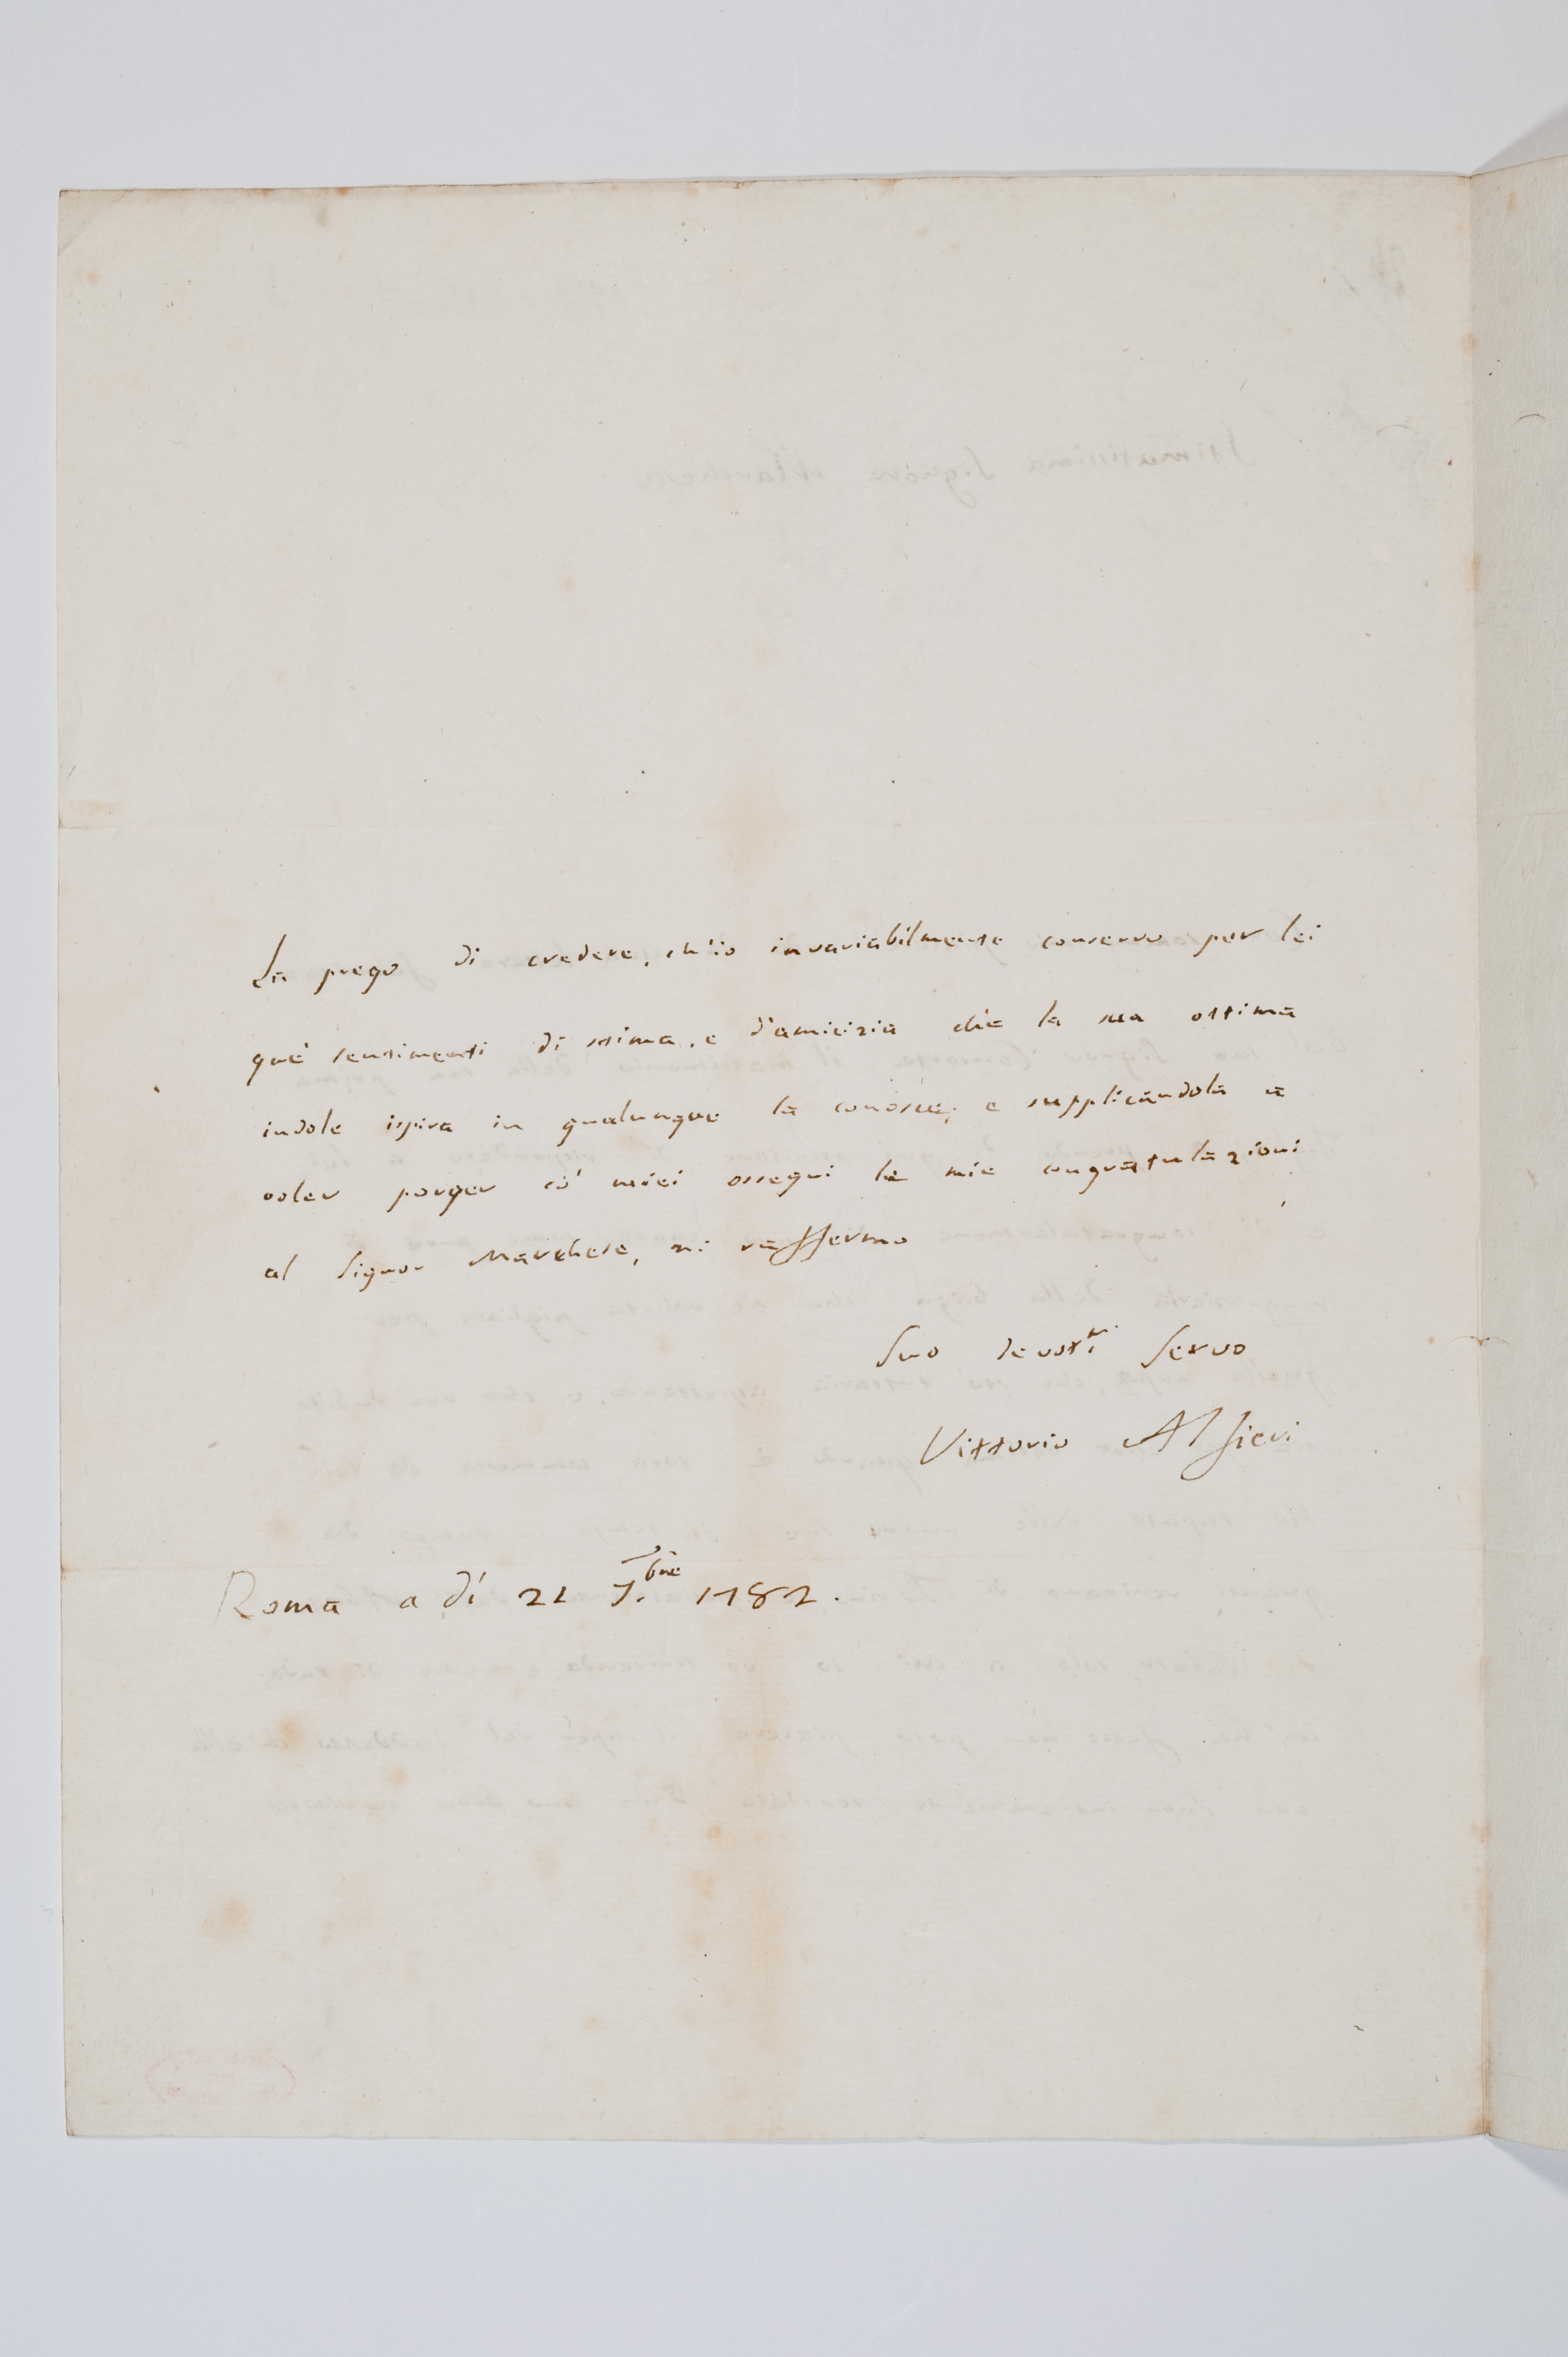 La prego di credere, ch'io invariabilmente conservo per lei
que' sentimenti di stima, e d'amicizia che la sua ottima
indole ispira in qualunque la conosce; e supplicandola a
voler porger co' miei ossequi le mie congratulazioni
al Signor Marchese, mi raffermo
Suo devotᵐᵒ Servo
Vittorio Alfieri
Roma a dí 21 7.bre 1782.